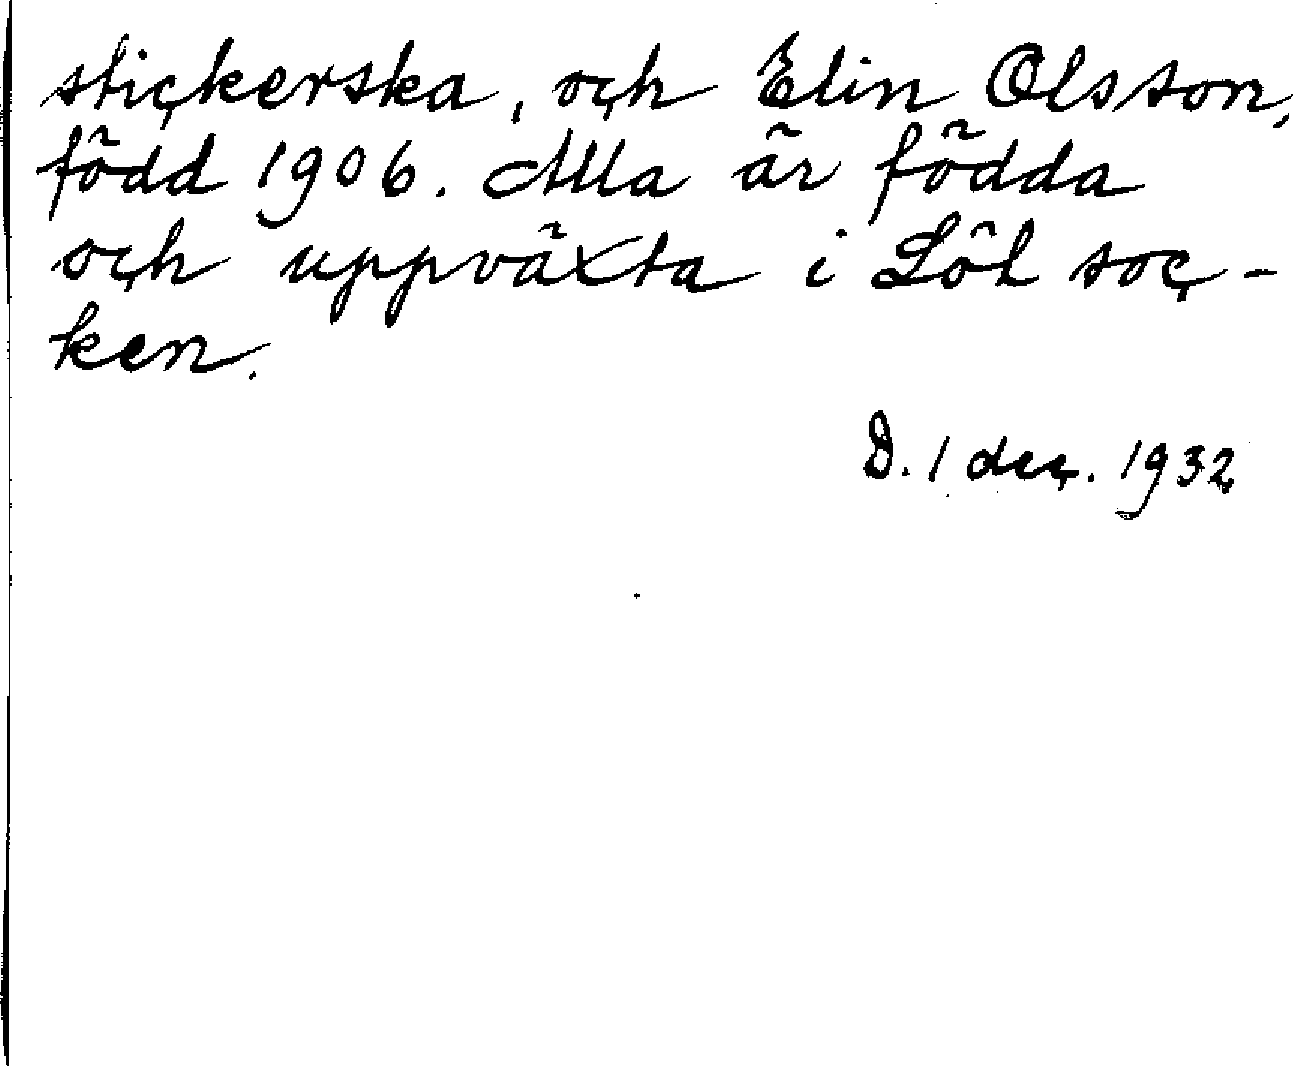 stickerska, och Elin Olsson,
född 1906. Alla är födda
och uppväxta i Löt soc-
ken.
D. 1 dec. 1932